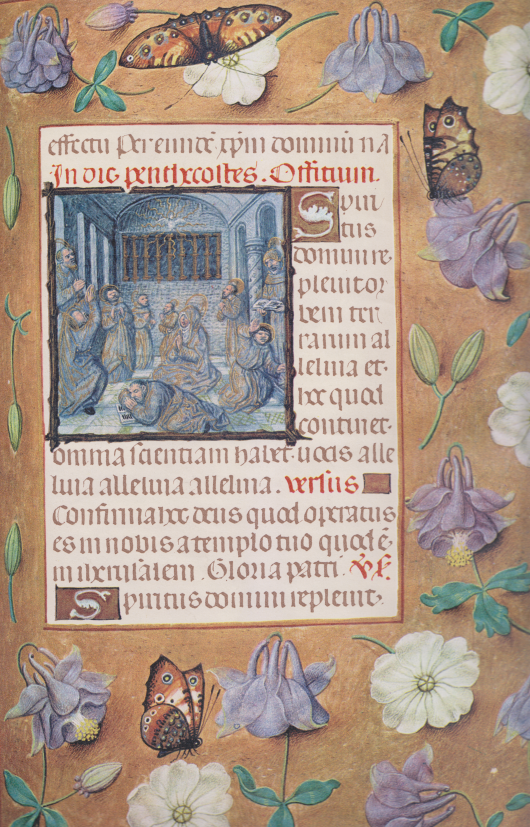 effectu Per eundē xp̄m dominū n̄a
In die penthecostes. Offitium.
Spiri
tus
domini re
pleuit or
bem ter
rarum al
leluia et
hoc quod
continet
omnia scientiam habet uocis alle
luia alleluia alleluia. versus
Confirma hoc deus quod operatus
es in nobis a templo tuo quod ē
in iherusalem. Gloria patri.
Spiritus domini repleuit